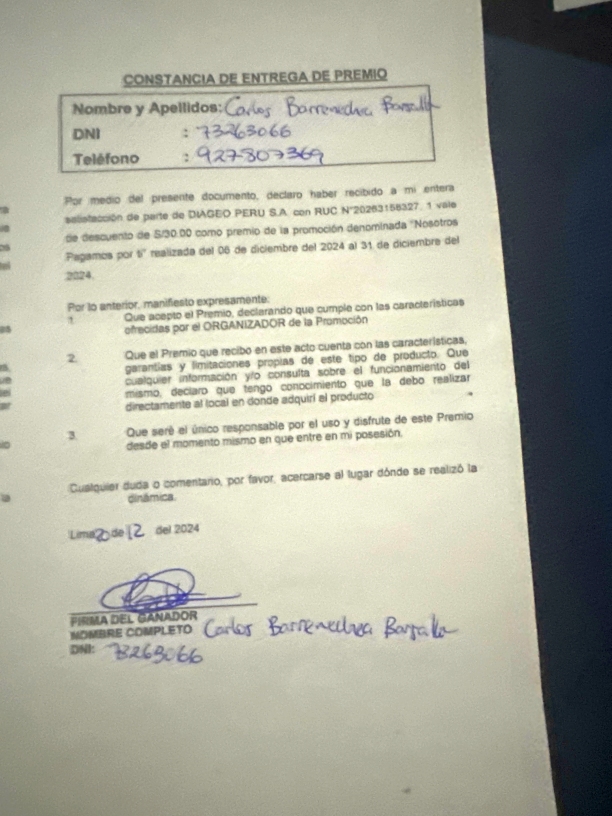 CONSTANCIA DE ENTREGA DE PREMIO
Nombre y Apellidos: Carlos Barrenechea
DNI : 73263066
Teléfono : 927807369
Por medio del presente documento, declaro haber recibido a mi entera
satisfacción de parte de DIAGEO PERU S.A. con RUC N°20263158327, 1 vale
de descuento de S/30.00 como premio de la promoción denominada "Nosotros
Pagamos por ti" realizada del 06 de diciembre del 2024 al 31 de diciembre del
2024.
Por lo anterior, manifiesto expresamente:
1. Que acepto el Premio, declarando que cumple con las características
ofrecidas por el ORGANIZADOR de la Promoción
2. Que el Premio que recibo en este acto cuenta con las características,
garantías y limitaciones propias de este tipo de producto. Que
cualquier información y/o consulta sobre el funcionamiento del
mismo, declaro que tengo conocimiento que la debo realizar
directamente al local en donde adquirí el producto
3. Que seré el único responsable por el uso y disfrute de este Premio
desde el momento mismo en que entre en mi posesión.
Cualquier duda o comentario, por favor, acercarse al lugar dónde se realizó la
dinámica.
Lima 20 de 12 del 2024
FIRMA DEL GANADOR
NOMBRE COMPLETO Carlos Barrenechea
DNI: 73263066